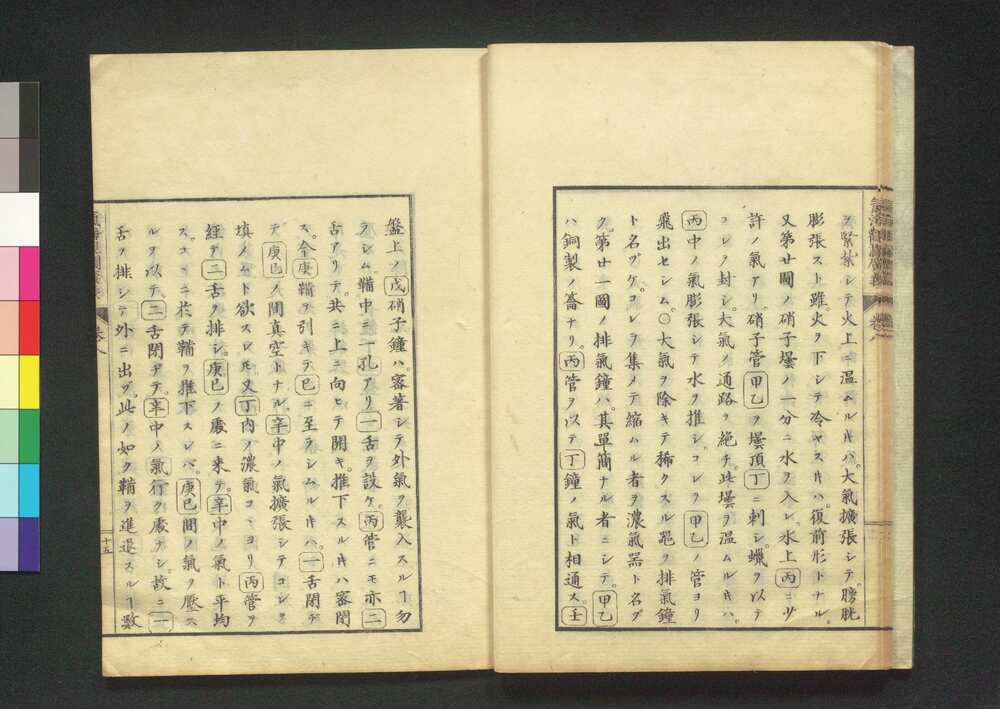 ヲ緊紮シテ火上ニ温ムルキハ。大氣擴張シテ。膀胱
膨張スト雖。火ヲ下シテ冷ヤスキハ。復前形トナル。
又第廿圖ノ硝子壜ノ一分ニ水ヲ入レ。水上丙ニ少
許ノ氣アリ。硝子管甲乙ヲ壜頂丁ニ刺シ。蠟ヲ以テ
コレヲ封シ。大氣ノ通路ヲ絶チ。此壜ヲ温ムルキハ。
丙中ノ氣膨張シテ水ヲ推シ。コレヲ甲乙ノ管ヨリ
飛出セシム。○大氣ヲ除キテ稀クスル噐ヲ排氣鐘
ト名ヅケ。コレヲ集メテ縮ハル者ヲ濃氣噐ト名ヅ
ク。第廿一圖ノ排氣鐘ハ。其單簡ナル者ニシテ。甲乙
ハ銅製ノ崙ナリ。丙管ヲ以テ丁鐘ノ氣ト相通ス。壬
盤上ノ戊硝子鐘ハ。審著シテ外氣ヲ襲入スルヿ勿
ラシム。鞴中ニ一孔アリ。一舌ヲ設ケ。丙管ニモ亦二
舌アリテ。共ニ上ニ向ヒテ開キ。推下スルキハ審閉
ス。今庚鞴ヲ引キテ巳ニ至ラシムルキハ。一舌閉ヂ
テ庚巳ノ間真空トナル。辛中ノ氣擴張シテコレヲ
填メムト欲スレ𪜈。又丁内ノ濃氣コヽヨリ丙管ヲ
經テ二舌ヲ排シ。庚巳ノ處ニ来テ。辛中ノ氣ト平均
ス。コヽニ於テ鞴ヲ推下スレバ。庚巳間ノ氣ヲ壓ス
ルヲ以テ。二舌閉ヂテ辛中ノ氣行ク處ナシ。故ニ一
舌ヲ排シテ外ニ出ヅ。此ノ如ク鞴ヲ進退スルヿ數
卷八
十五